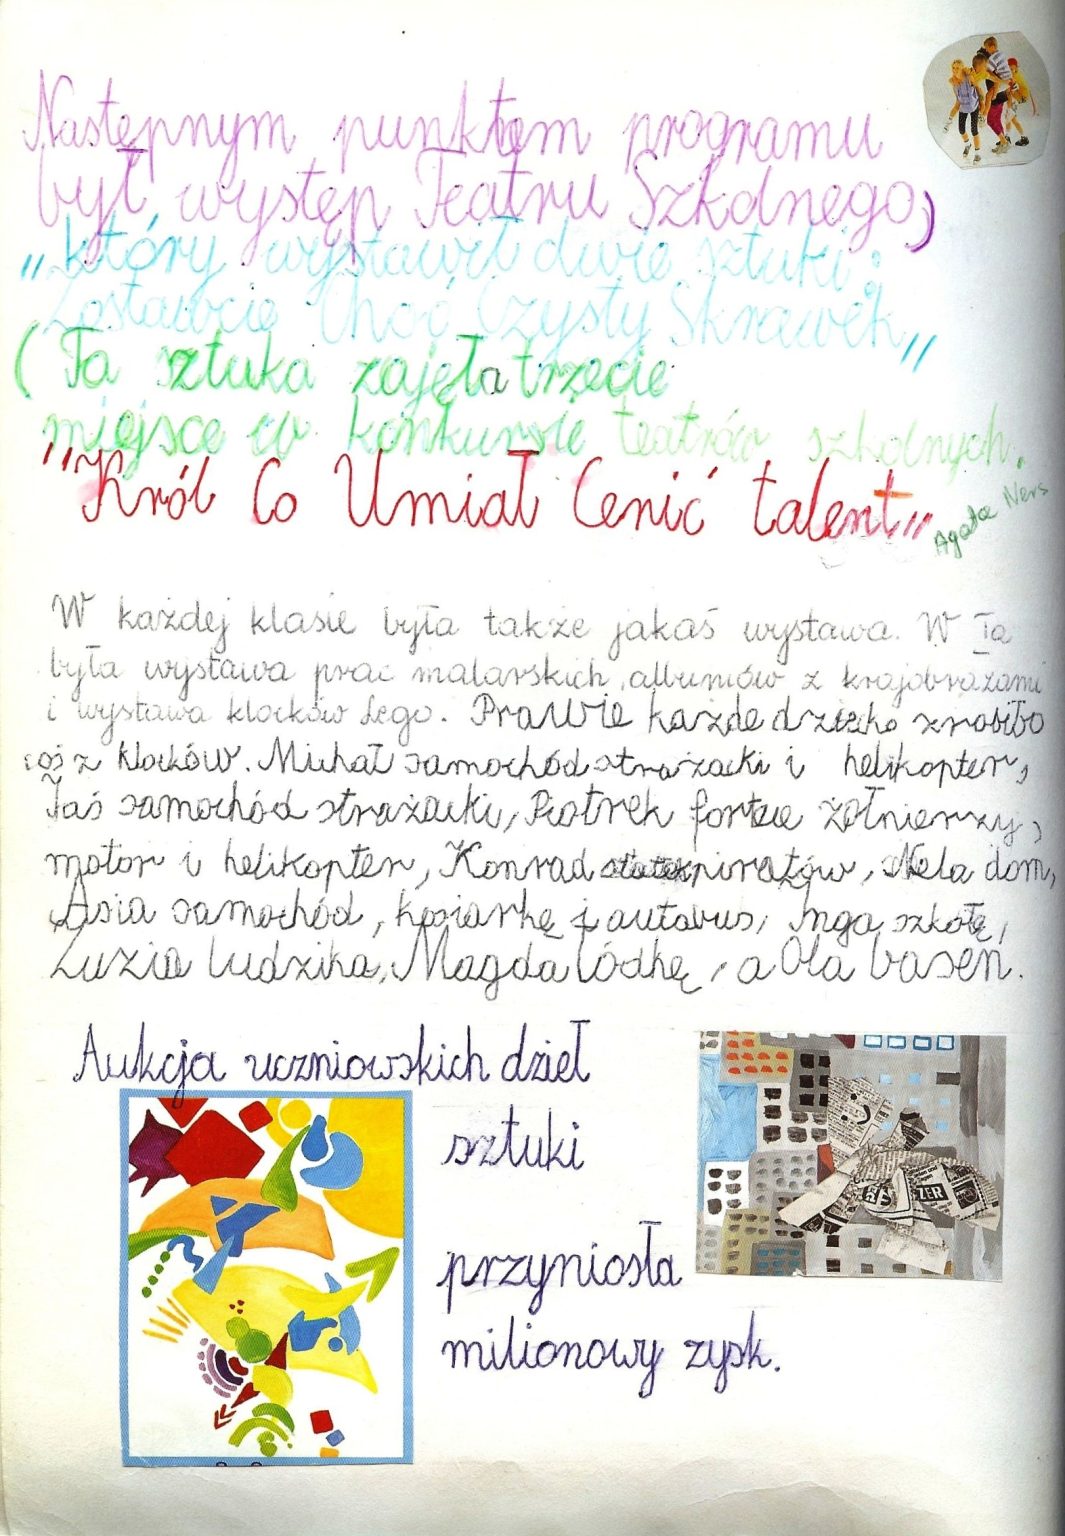 Następnym punktem programu
był występ Teatru Szkolnego,
który wystawił dwie sztuki:
"Zostawcie Choć Czysty Skrawek"
(Ta sztuka zajęła trzecie
miejsce w konkursie teatrów szkolnych.
"Król Co Umiał Cenić talent"
Agata Ners
W każdej klasie była także jakaś wystawa. W Ia
była wystawa prac malarskich, albumów z krajobrazami
i wystawa klocków Lego. Prawie każde dziecko zrobiło
coś z klocków. Michał samochód strażacki i helikopter,
Jaś samochód strażacki, Piotrek fortece żołnierzy,
motor i helikopter, Konrad statek piratów, Nela dom,
Asia samochód, kosiarkę i autobus, Inga szkołę,
Luzia ludzika, Magda łódkę, a Ola basen.
Aukcja uczniowskich dzieł
sztuki
przyniosła
milionowy zysk.